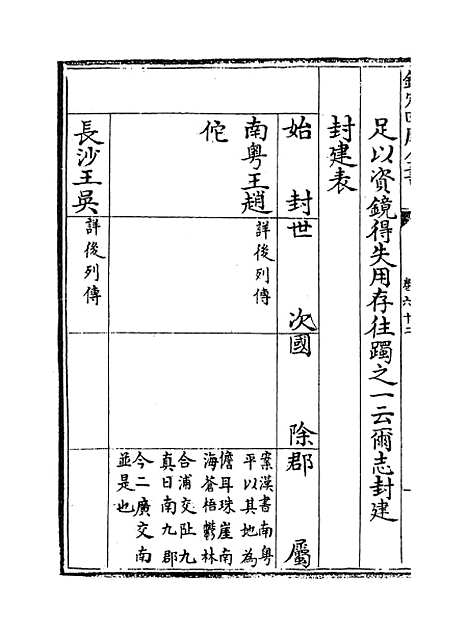 欽定四庫全書
卷六十二
足以資鏡得失用存往躅之一云爾志封建
封建表
始封世次國除郡屬
南粤王趙佗
詳後列傳
案漢書南粤
平以其地為
儋耳珠崖南
海蒼梧鬱林
合浦交阯九
真日南九郡
今二廣交南
並是也
長沙王吳
詳後列傳